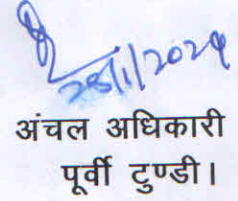 25/1/2024
अंचल अधिकारी
पूर्वी टुण्डी।